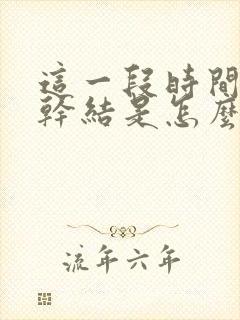 這一段時間
幹結是怎麼
流年六年